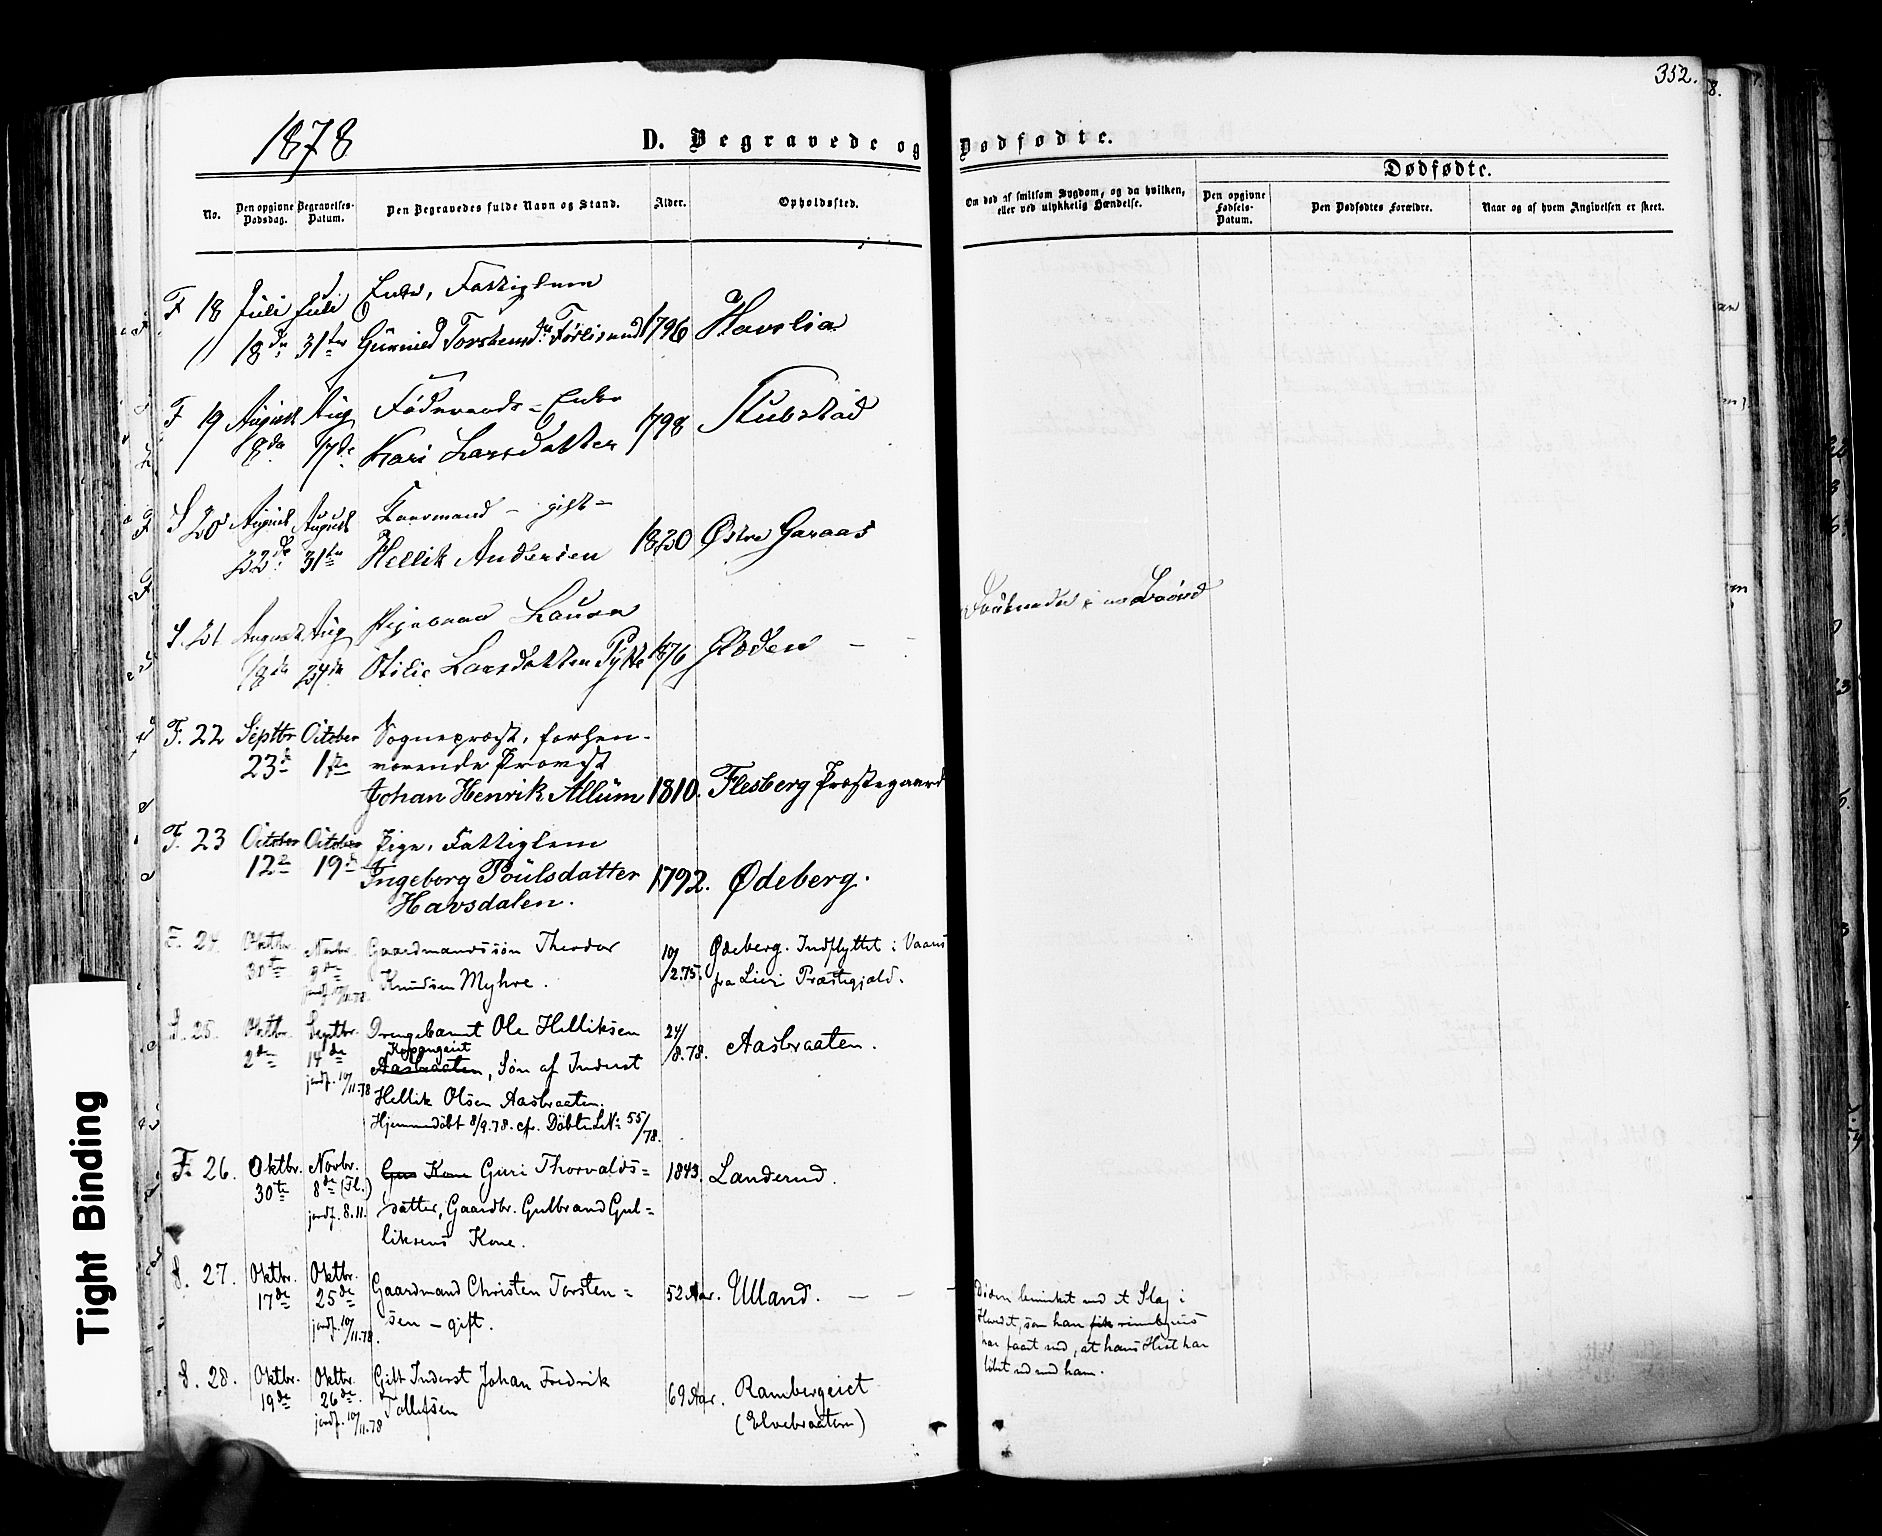 352.
1878
D. Begravede og Dødfødte.
Dødfødte.
No.
Den opgivne Dødsdag.
Begravelses-Datum.
Den Begravedes fulde Navn og Stand.
Alder.
Opholdssted.
Om død af smitsom Sygdom, og da hvilken, eller ved ulykkelig Hændelse.
Den opgivne Fødsels-Datum.
Den Dødfødtes Forældre.
Naar og af hvem Angivelsen er skeet.
F 18 Juli Juli Enke, Fattiglem
18de 31te Torstensd. 1796 Havslia
F 19 August Aug Føderaads-Enke
8de 17de Kari Larsdatter 1798 Stubstad
S 20 August August Kaarmand - gift -
22de 31te Hellik Andersen 1830 Østre Garaas
S. 21 August Aug Pigebarn Laura
18de 24de Otilie Larsdatter 1876
F. 22 Septbr October Sognepræst, forhen-
23de 1ste værende Provst
Johan Henrik Allum 1810. Flesberg Præstegaard
F. 23 October October Pige, Fattiglem
12te 19de Ingeborg Poulsdatter 1792. Ødeberg.
Havsdalen.
F. 24. Oktbr. Novbr. Gaardmandssøn Theodor 10/2.75. Ødeberg. Indflyttet i Vaares
30te 9de Knudsen Myhre. fra Lier Præstegjæld.
S. 25. Oktbr. Septbr. Drengebarnet Ole Helliksen 24/8.78. Aasbraaten.
2den 14de
jordf. 10/11.78 Aasbraaten, Søn af Inderst
Hellik Olsen Aasbraaten.
Hjemmedøbt 8/9.78. cfr. Døbte L. No 55/78.
F. 26. Oktbr. Novbr. Kone Guri Thorvalds- 1843. Landerud.
30te 8de (Fl.)
jordf. 8.11. datter, Gaardbr. Gulbrand Gul-
liksens Kone.
S. 27. Oktbr. Oktbr. Gaardmand Christen Torsten- 52 Aar. Ulland. — — —
17de 25de sen - gift.
jordf. 10/11.78.
Døden bevirket ved et Slag i
Hovedet, som han fik rimeligvis
har faaet ved, at hans Hest har
løbet ud med ham.
S. 28. Oktbr. Oktbr. Gift Inderst Johan Fredrik 69 Aar. Rambergeiet
19de 26de Tollefsen (Elvebraaten)
jordf. 10/11.78
Tight Binding